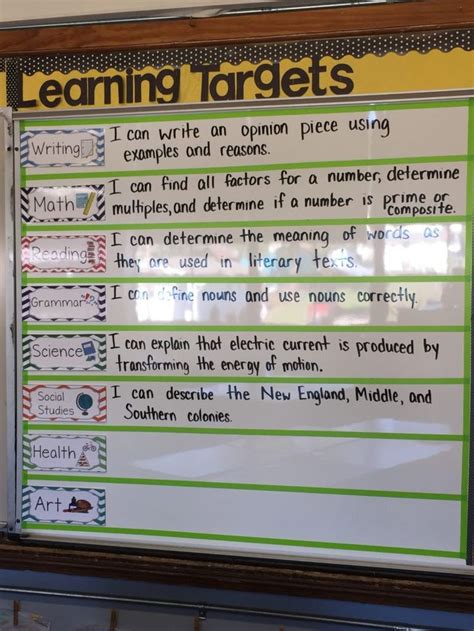 Learning Targets
Writing
I can write an opinion piece using
examples and reasons.
Math
I can find all factors for a number, determine
multiples, and determine if a number is prime or
composite.
Reading
I can determine the meaning of words as
they are used in literary texts.
Grammar
I can define nouns and use nouns correctly.
Science
I can explain that electric current is produced by
transforming the energy of motion.
Social
Studies
I can describe the New England, Middle, and
Southern colonies.
Health
Art